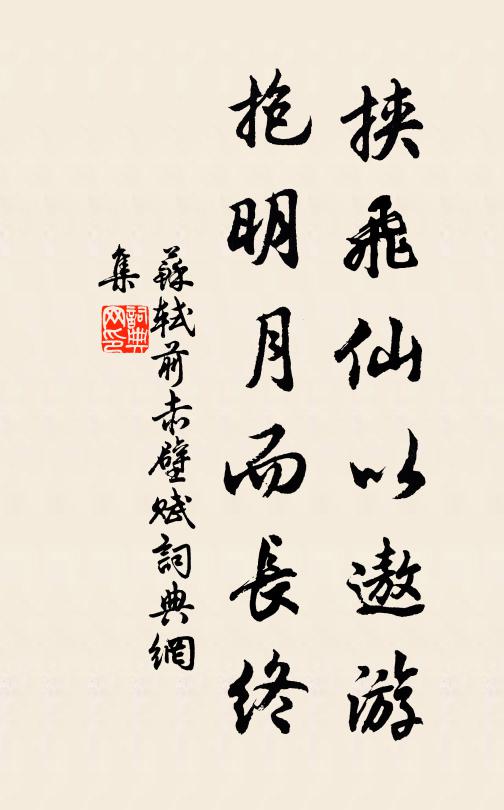 挾飛仙以遨游
抱明月而長終
蘇軾前赤壁賦詞典網
集
詞典网印